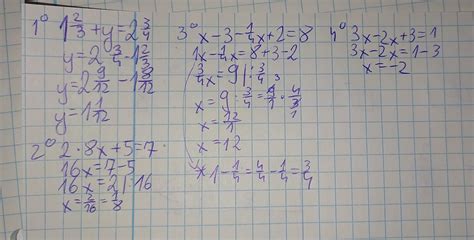 1° 1 2/3 + y = 2 3/4
y = 2 3/4 - 1 2/3
y = 2 9/12 - 1 8/12
y = 1 1/12
2° 2 · 8x + 5 = 7
16x = 7 - 5
16x = 2 | : 16
x = 2/16 = 1/8
3° x - 3 - 1/4x + 2 = 8
1x - 1/4x = 8 + 3 - 2
3/4x = 9 | : 3/4
x = 9 : 3/4 = 9/1 · 4/3
x = 12/1
x = 12
* 1 - 1/4 = 4/4 - 1/4 = 3/4
4° 3x - 2x + 3 = 1
3x - 2x = 1 - 3
x = -2